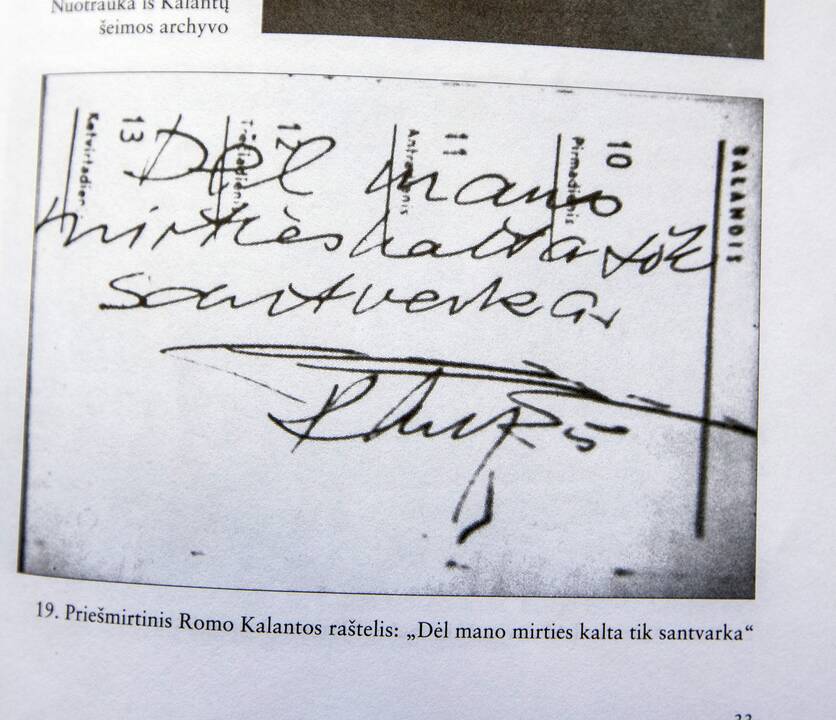 Nuotrauka iš Kalantų
šeimos archyvo
BALANDIS
10
Pirmadienis
11
Antradienis
12
Trečiadienis
13
Ketvirtadien
Dėl mano
mirties kalta tik
santvarka
19. Priešmirtinis Romo Kalantos raštelis: „Dėl mano mirties kalta tik santvarka“